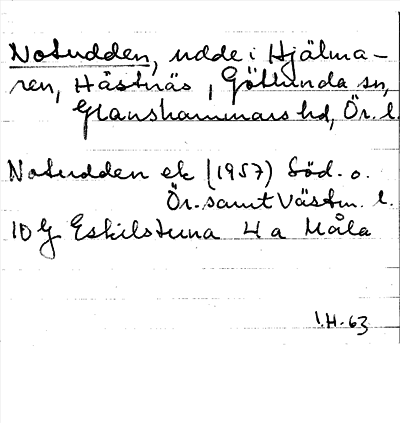 Notudden, udde i Hjälma-
ren, Hästnäs, Götlunda sn,
Glanshammars hd, Ör. l.
Notudden ek (1957) Söd. o.
Ör. samt Västm. l.
10 G Eskilstuna 4 a Måla
I.H.-63